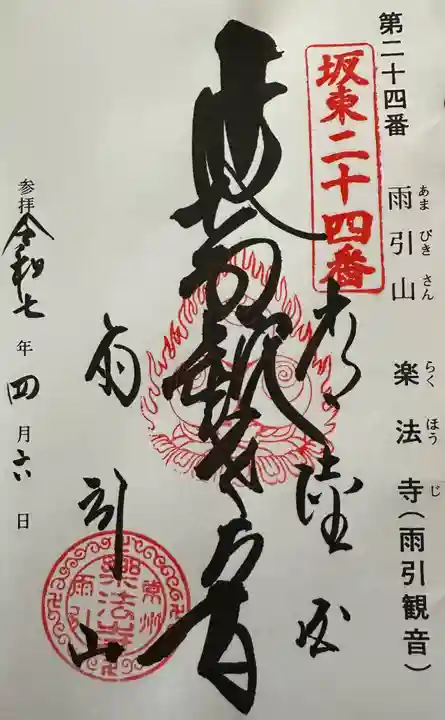 第二十四番 雨引山 楽法寺(雨引観音)
あま びき さん らく ほう じ
坂東二十四番
常陸国
雨引山
参拝 令和七年四月六日
常州
樂法寺
雨引山